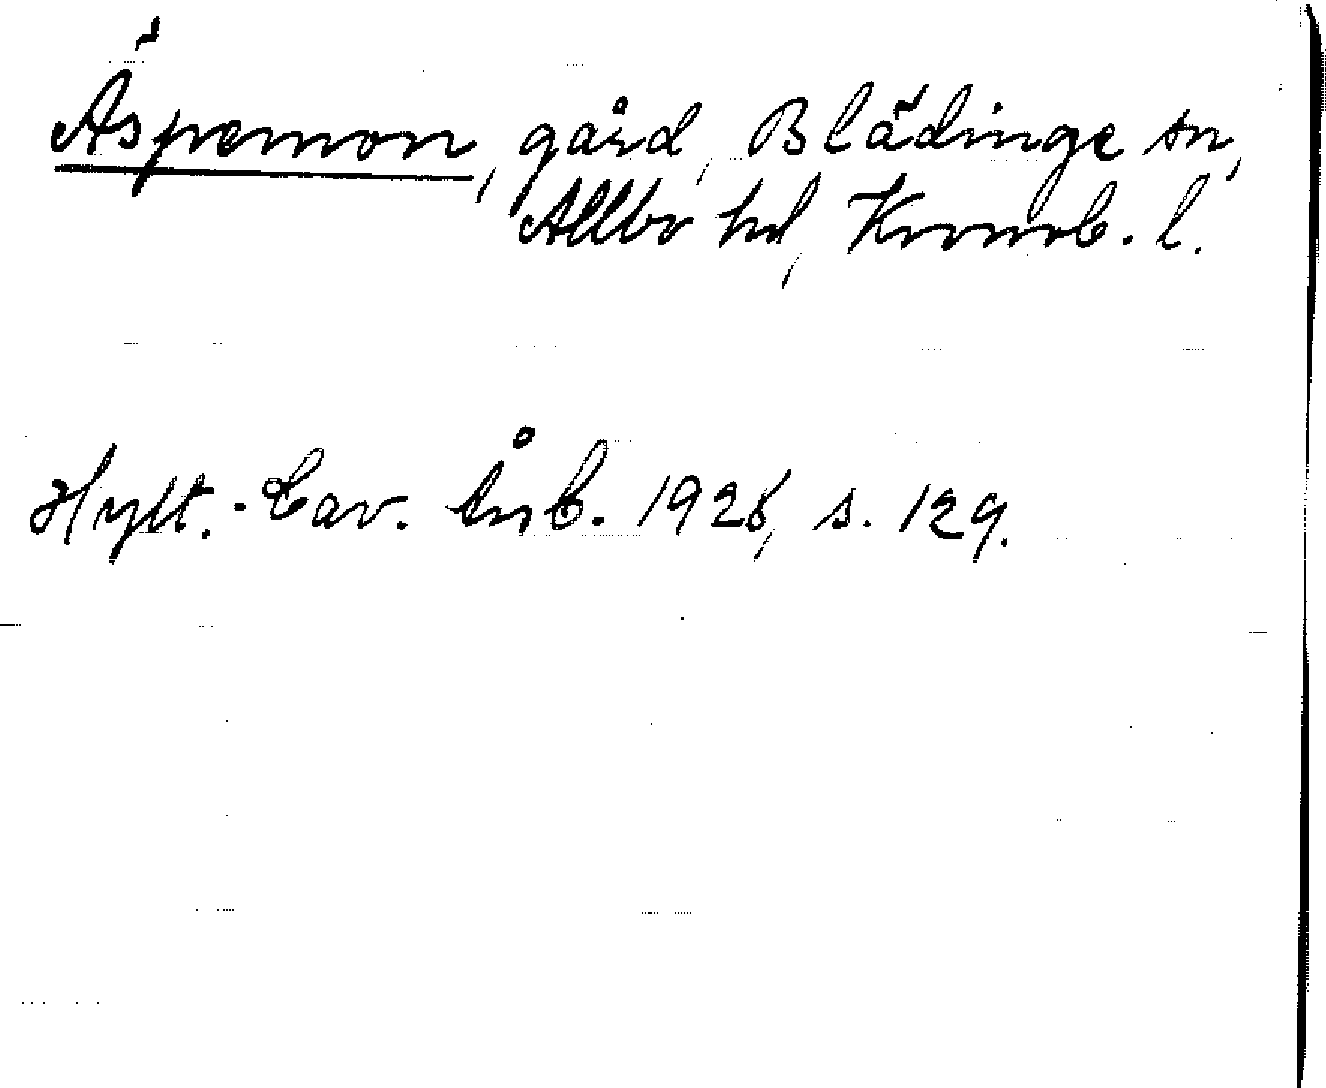 Äspemon, gård, Blädinge sn,
Allbo hd, Kronob. l.
Hylt.-Cav. Årsb. 1926, s. 129.